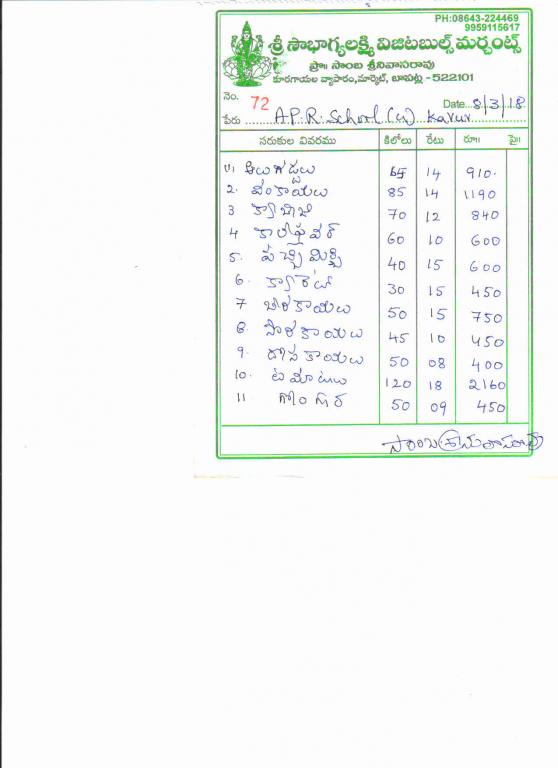 PH:08643-224469
9959115617
శ్రీ సౌభాగ్యలక్ష్మి విజిటబుల్స్ మర్చంట్స్
ప్రొ॥ సాంబ శ్రీనివాసరావు
కూరగాయల వ్యాపారం,మార్కెట్, బాపట్ల - 522101
నెం. 72 Date. 8/3/18
పేరు A.P.R. School (G) Karur
సరుకుల వివరము కిలోలు రేటు రూ॥ పై॥
1) ఆలుగడ్డలు 65 14 910.
2. వంకాయలు 85 14 1190
3 క్యాబేజి 70 12 840
4 కాలీఫ్లవర్ 60 10 600
5. పచ్చిమిర్చి 40 15 600
6. క్యారెట్ 30 15 450
7 బీరకాయలు 50 15 750
8 సొరకాయలు 45 10 450
9. దోసకాయలు 50 08 400
10. టమాటలు 120 18 2160
11 గోంగూర 50 09 450